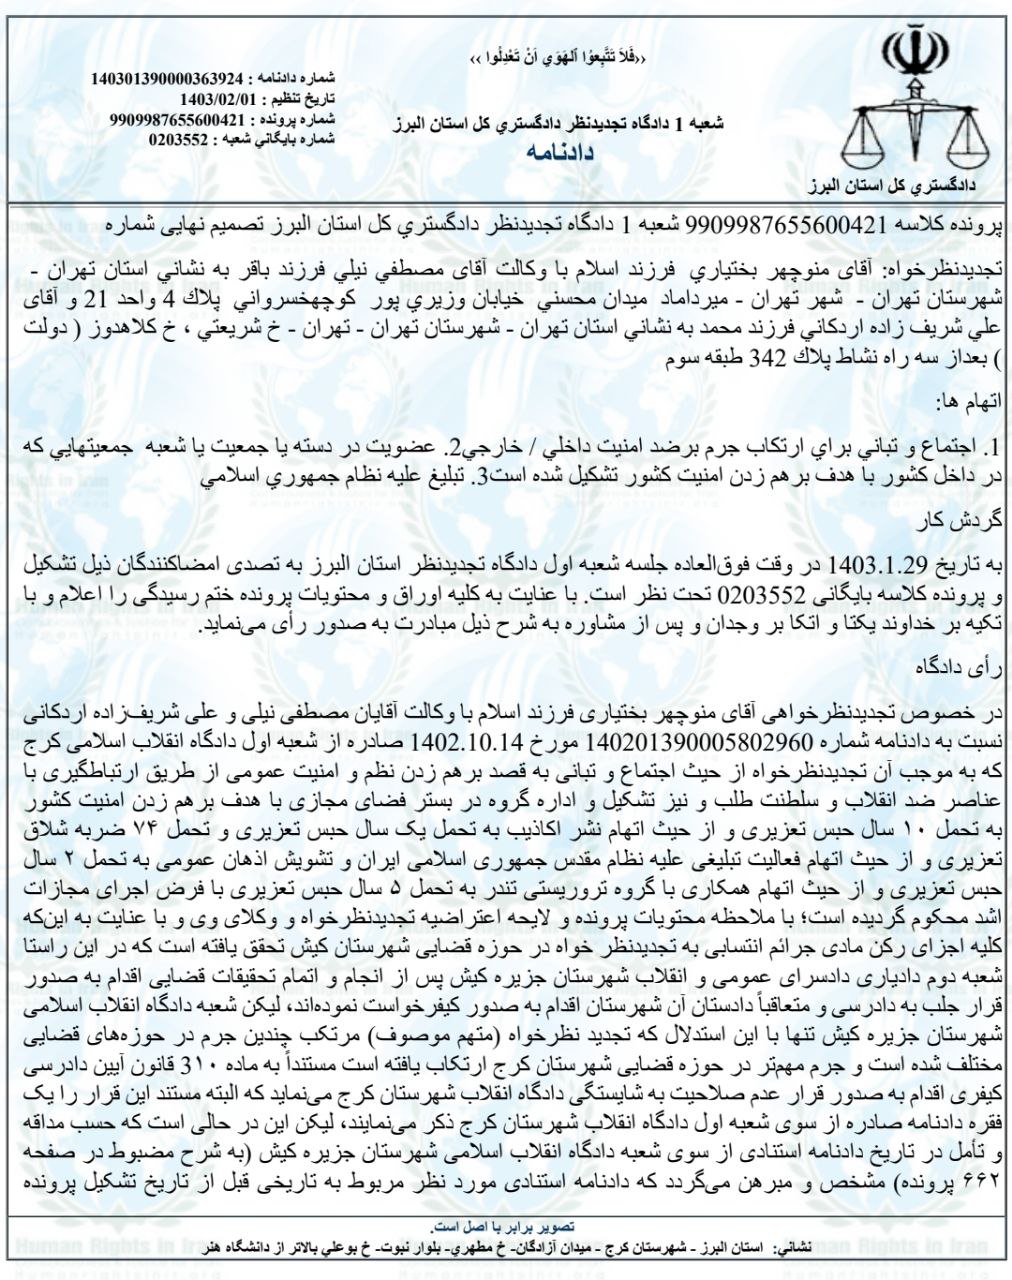 ‹‹فَلاَ تَتَّبِعوُا اَلهَوَي اَنْ تَعْدِلُوا ››
شعبه 1 دادگاه تجديدنظر دادگستري كل استان البرز
دادنامه
شماره دادنامه : 140301390000363924
تاريخ تنظيم : 1403/02/01
شماره پرونده : 9909987655600421
شماره بايگاني شعبه : 0203552
دادگستري كل استان البرز
پرونده كلاسه 9909987655600421 شعبه 1 دادگاه تجديدنظر دادگستري كل استان البرز تصميم نهايی شماره
تجديدنظرخواه: آقای منوچهر بختياري فرزند اسلام با وكالت آقای مصطفي نيلي فرزند باقر به نشاني استان تهران -
شهرستان تهران - شهر تهران - ميرداماد ميدان محسني خيابان وزيري پور كوچهخسرواني پلاك 4 واحد 21 و آقای
علي شريف زاده اردكاني فرزند محمد به نشاني استان تهران - شهرستان تهران - تهران - خ شريعتي ، خ كلاهدوز ( دولت
) بعداز سه راه نشاط پلاك 342 طبقه سوم
اتهام ها:
1. اجتماع و تباني براي ارتكاب جرم برضد امنيت داخلي / خارجي2. عضويت در دسته يا جمعيت يا شعبه جمعيتهايي كه
در داخل كشور با هدف برهم زدن امنيت كشور تشكيل شده است3. تبليغ عليه نظام جمهوري اسلامي
گردش كار
به تاريخ 1403.1.29 در وقت فوق‌العاده جلسه شعبه اول دادگاه تجديدنظر استان البرز به تصدی امضاكنندگان ذيل تشكيل
و پرونده كلاسه بايگانی 0203552 تحت نظر است. با عنايت به كليه اوراق و محتويات پرونده ختم رسيدگی را اعلام و با
تكيه بر خداوند يكتا و اتكا بر وجدان و پس از مشاوره به شرح ذيل مبادرت به صدور رأی می‌نمايد.
رأی دادگاه
در خصوص تجديدنظرخواهی آقای منوچهر بختياری فرزند اسلام با وكالت آقايان مصطفی نيلی و علی شريف‌زاده اردكانی
نسبت به دادنامه شماره 140201390005802960 مورخ 1402.10.14 صادره از شعبه اول دادگاه انقلاب اسلامی كرج
كه به موجب آن تجديدنظرخواه از حيث اجتماع و تبانی به قصد برهم زدن نظم و امنيت عمومی از طريق ارتباطگيری با
عناصر ضد انقلاب و سلطنت طلب و نيز تشكيل و اداره گروه در بستر فضای مجازی با هدف برهم زدن امنيت كشور
به تحمل ۱۰ سال حبس تعزيری و از حيث اتهام نشر اكاذيب به تحمل يک سال حبس تعزيری و تحمل ۷۴ ضربه شلاق
تعزيری و از حيث اتهام فعاليت تبليغی عليه نظام مقدس جمهوری اسلامی ايران و تشويش اذهان عمومی به تحمل ۲ سال
حبس تعزيری و از حيث اتهام همكاری با گروه تروريستی تندر به تحمل ۵ سال حبس تعزيری با فرض اجرای مجازات
اشد محكوم گرديده است؛ با ملاحظه محتويات پرونده و لايحه اعتراضيه تجديدنظرخواه و وكلای وی و با عنايت به اين‌كه
كليه اجزای ركن مادی جرائم انتسابی به تجديدنظر خواه در حوزه قضايی شهرستان كيش تحقق يافته است كه در اين راستا
شعبه دوم دادياری دادسرای عمومی و انقلاب شهرستان جزيره كيش پس از انجام و اتمام تحقيقات قضايی اقدام به صدور
قرار جلب به دادرسی و متعاقباً دادستان آن شهرستان اقدام به صدور كيفرخواست نموده‌اند، ليكن شعبه دادگاه انقلاب اسلامی
شهرستان جزيره كيش تنها با اين استدلال كه تجديد نظرخواه (متهم موصوف) مرتكب چندين جرم در حوزه‌های قضايی
مختلف شده است و جرم مهم‌تر در حوزه قضايی شهرستان كرج ارتكاب يافته است مستنداً به ماده ۳۱۰ قانون آيين دادرسی
كيفری اقدام به صدور قرار عدم صلاحيت به شايستگی دادگاه انقلاب شهرستان كرج می‌نمايد كه البته مستند اين قرار را يک
فقره دادنامه صادره از سوی شعبه اول دادگاه انقلاب شهرستان كرج ذكر می‌نمايند، ليكن اين در حالی است كه حسب مداقه
و تأمل در تاريخ دادنامه استنادی از سوی شعبه دادگاه انقلاب اسلامی شهرستان جزيره كيش (به شرح مضبوط در صفحه
۶۶۲ پرونده) مشخص و مبرهن می‌گردد كه دادنامه استنادی مورد نظر مربوط به تاريخی قبل از تاريخ تشكيل پرونده
تصوير برابر با اصل است.
نشاني: استان البرز - شهرستان كرج - ميدان آزادگان- خ مطهري- بلوار نبوت- خ بوعلي بالاتر از دانشگاه هنر